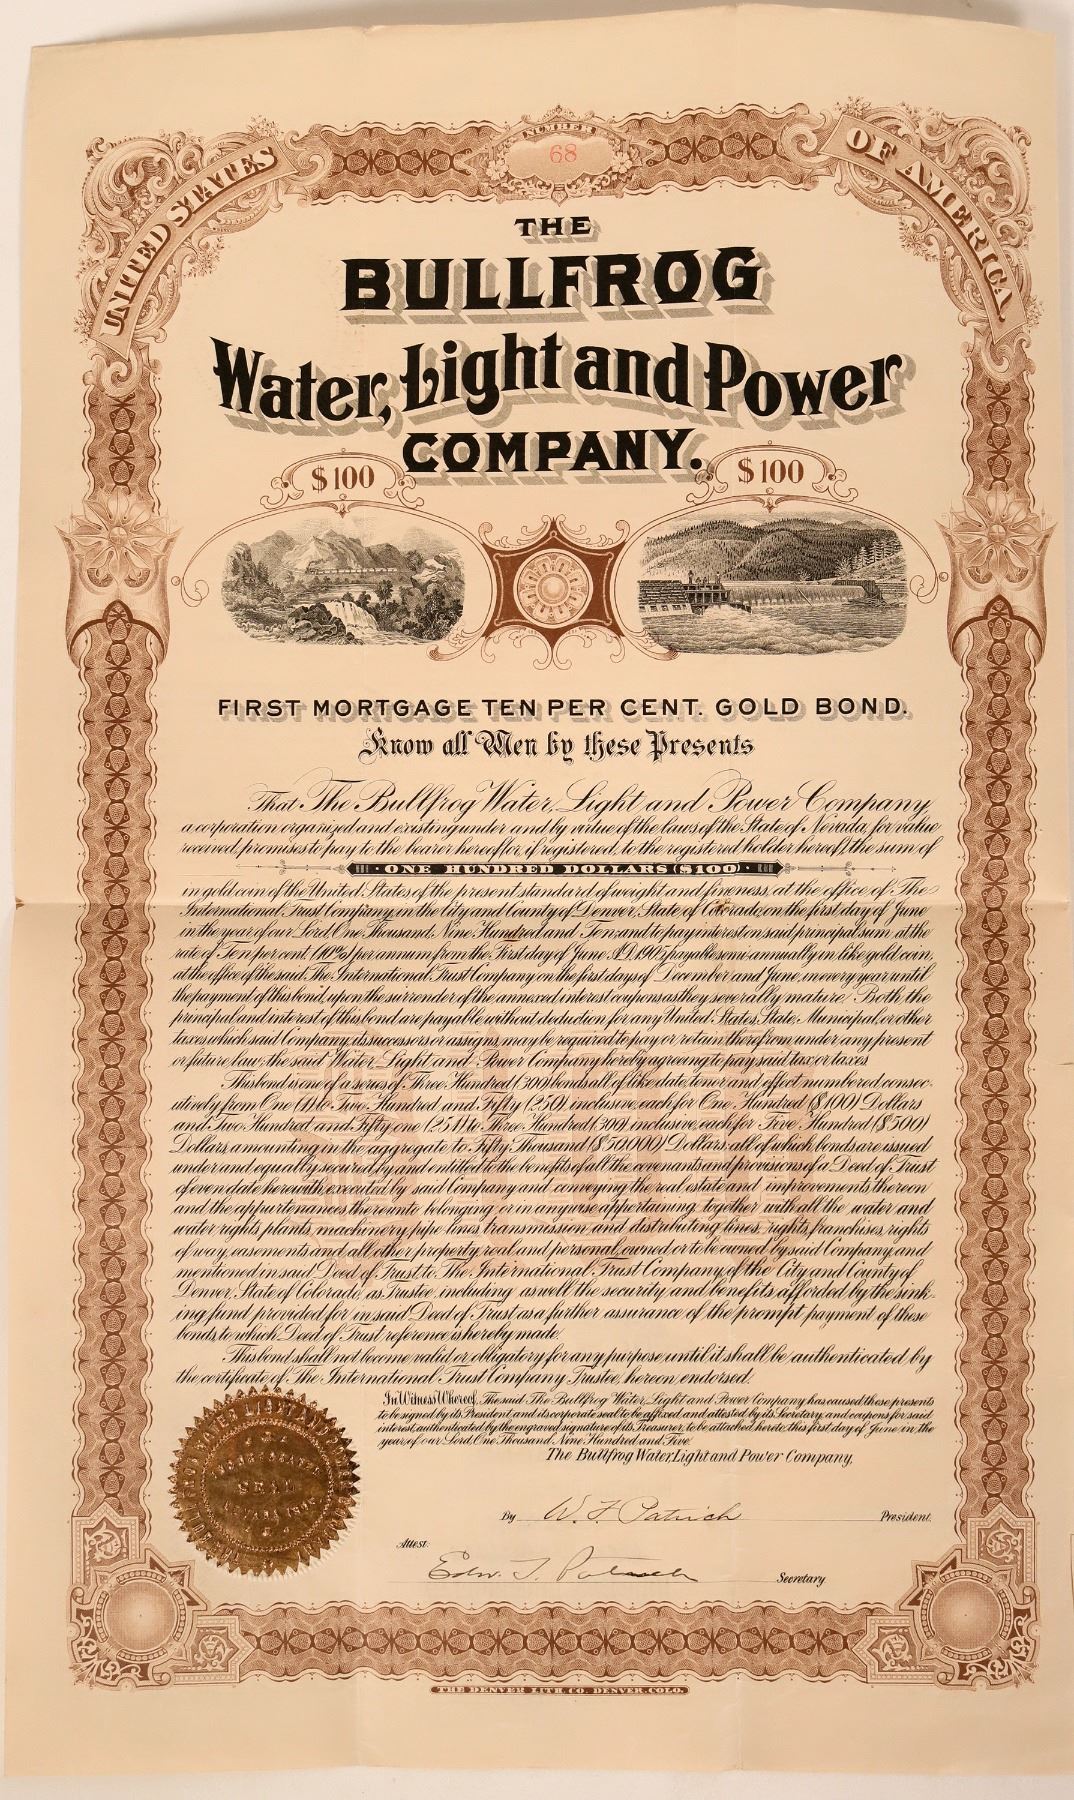 NUMBER
68
UNITED STATES
OF AMERICA
THE
BULLFROG
Water, Light and Power
COMPANY.
$100
$100
FIRST MORTGAGE TEN PER CENT. GOLD BOND.
Know all Men by these Presents
That The Bullfrog Water, Light and Power Company,
a corporation organized and existing under and by virtue of the laws of the State of Nevada, for value
received, promises to pay to the bearer hereof, or, if registered, to the registered holder hereof, the sum of
ONE HUNDRED DOLLARS ($100)
in gold coin of the United States of the present standard of weight and fineness, at the office of The
International Trust Company, in the City and County of Denver, State of Colorado, on the first day of June
in the year of our Lord One Thousand, Nine Hundred and Ten, and to pay interest on said principal sum at the
rate of Ten per cent. (10%) per annum from the First day of June A.D. 1905, payable semi-annually in like gold coin,
at the office of the said, The International Trust Company on the first days of December and June, in every year until
the payment of this bond, upon the surrender of the annexed interest coupons as they severally mature. Both the
principal and interest of this bond are payable without deduction for any United States, State, Municipal, or other
taxes which said Company, its successors or assigns, may be required to pay or retain therefrom under any present
or future law, the said Water, Light and Power Company hereby agreeing to pay said tax or taxes.
This bond is one of a series of Three Hundred (300) bonds all of like date, tenor and effect, numbered consec-
utively from One (1) to Two Hundred and Fifty (250) inclusive, each for One Hundred ($100) Dollars
and Two Hundred and Fifty one (251) to Three Hundred (300) inclusive, each for Five Hundred ($500)
Dollars, amounting in the aggregate to Fifty Thousand ($50,000) Dollars, all of which bonds are issued
under and equally secured by and entitled to the benefits of all the covenants and provisions of a Deed of Trust
of even date herewith, executed by said Company and conveying the real estate and improvements thereon
and the appurtenances thereunto belonging, or in anywise appertaining, together with all the water and
water rights, plants, machinery, pipe lines, transmission and distributing lines, rights, franchises, rights
of way, easements and all other property, real and personal, owned or to be owned by said Company, and
mentioned in said Deed of Trust, to The International Trust Company, of the City and County of
Denver, State of Colorado, as Trustee, including as well the security and benefits afforded by the sink-
ing fund provided for in said Deed of Trust, as a further assurance of the prompt payment of these
bonds, to which Deed of Trust reference is hereby made.
This bond shall not become valid or obligatory for any purpose until it shall be authenticated by
the certificate of The International Trust Company, Trustee, hereon endorsed.
In Witness Whereof, The said The Bullfrog Water, Light and Power Company has caused these presents
to be signed by its President, and its corporate seal to be affixed and attested by its Secretary, and coupons for said
interest, authenticated by the engraved signature of its Treasurer, to be attached hereto, this first day of June in the
year of our Lord, One Thousand Nine Hundred and Five.
The Bullfrog Water, Light and Power Company,
By W. F. Patrick President.
Attest:
Edw. T. Patrick Secretary
SEAL
THE DENVER LITH. CO. DENVER, COLO.